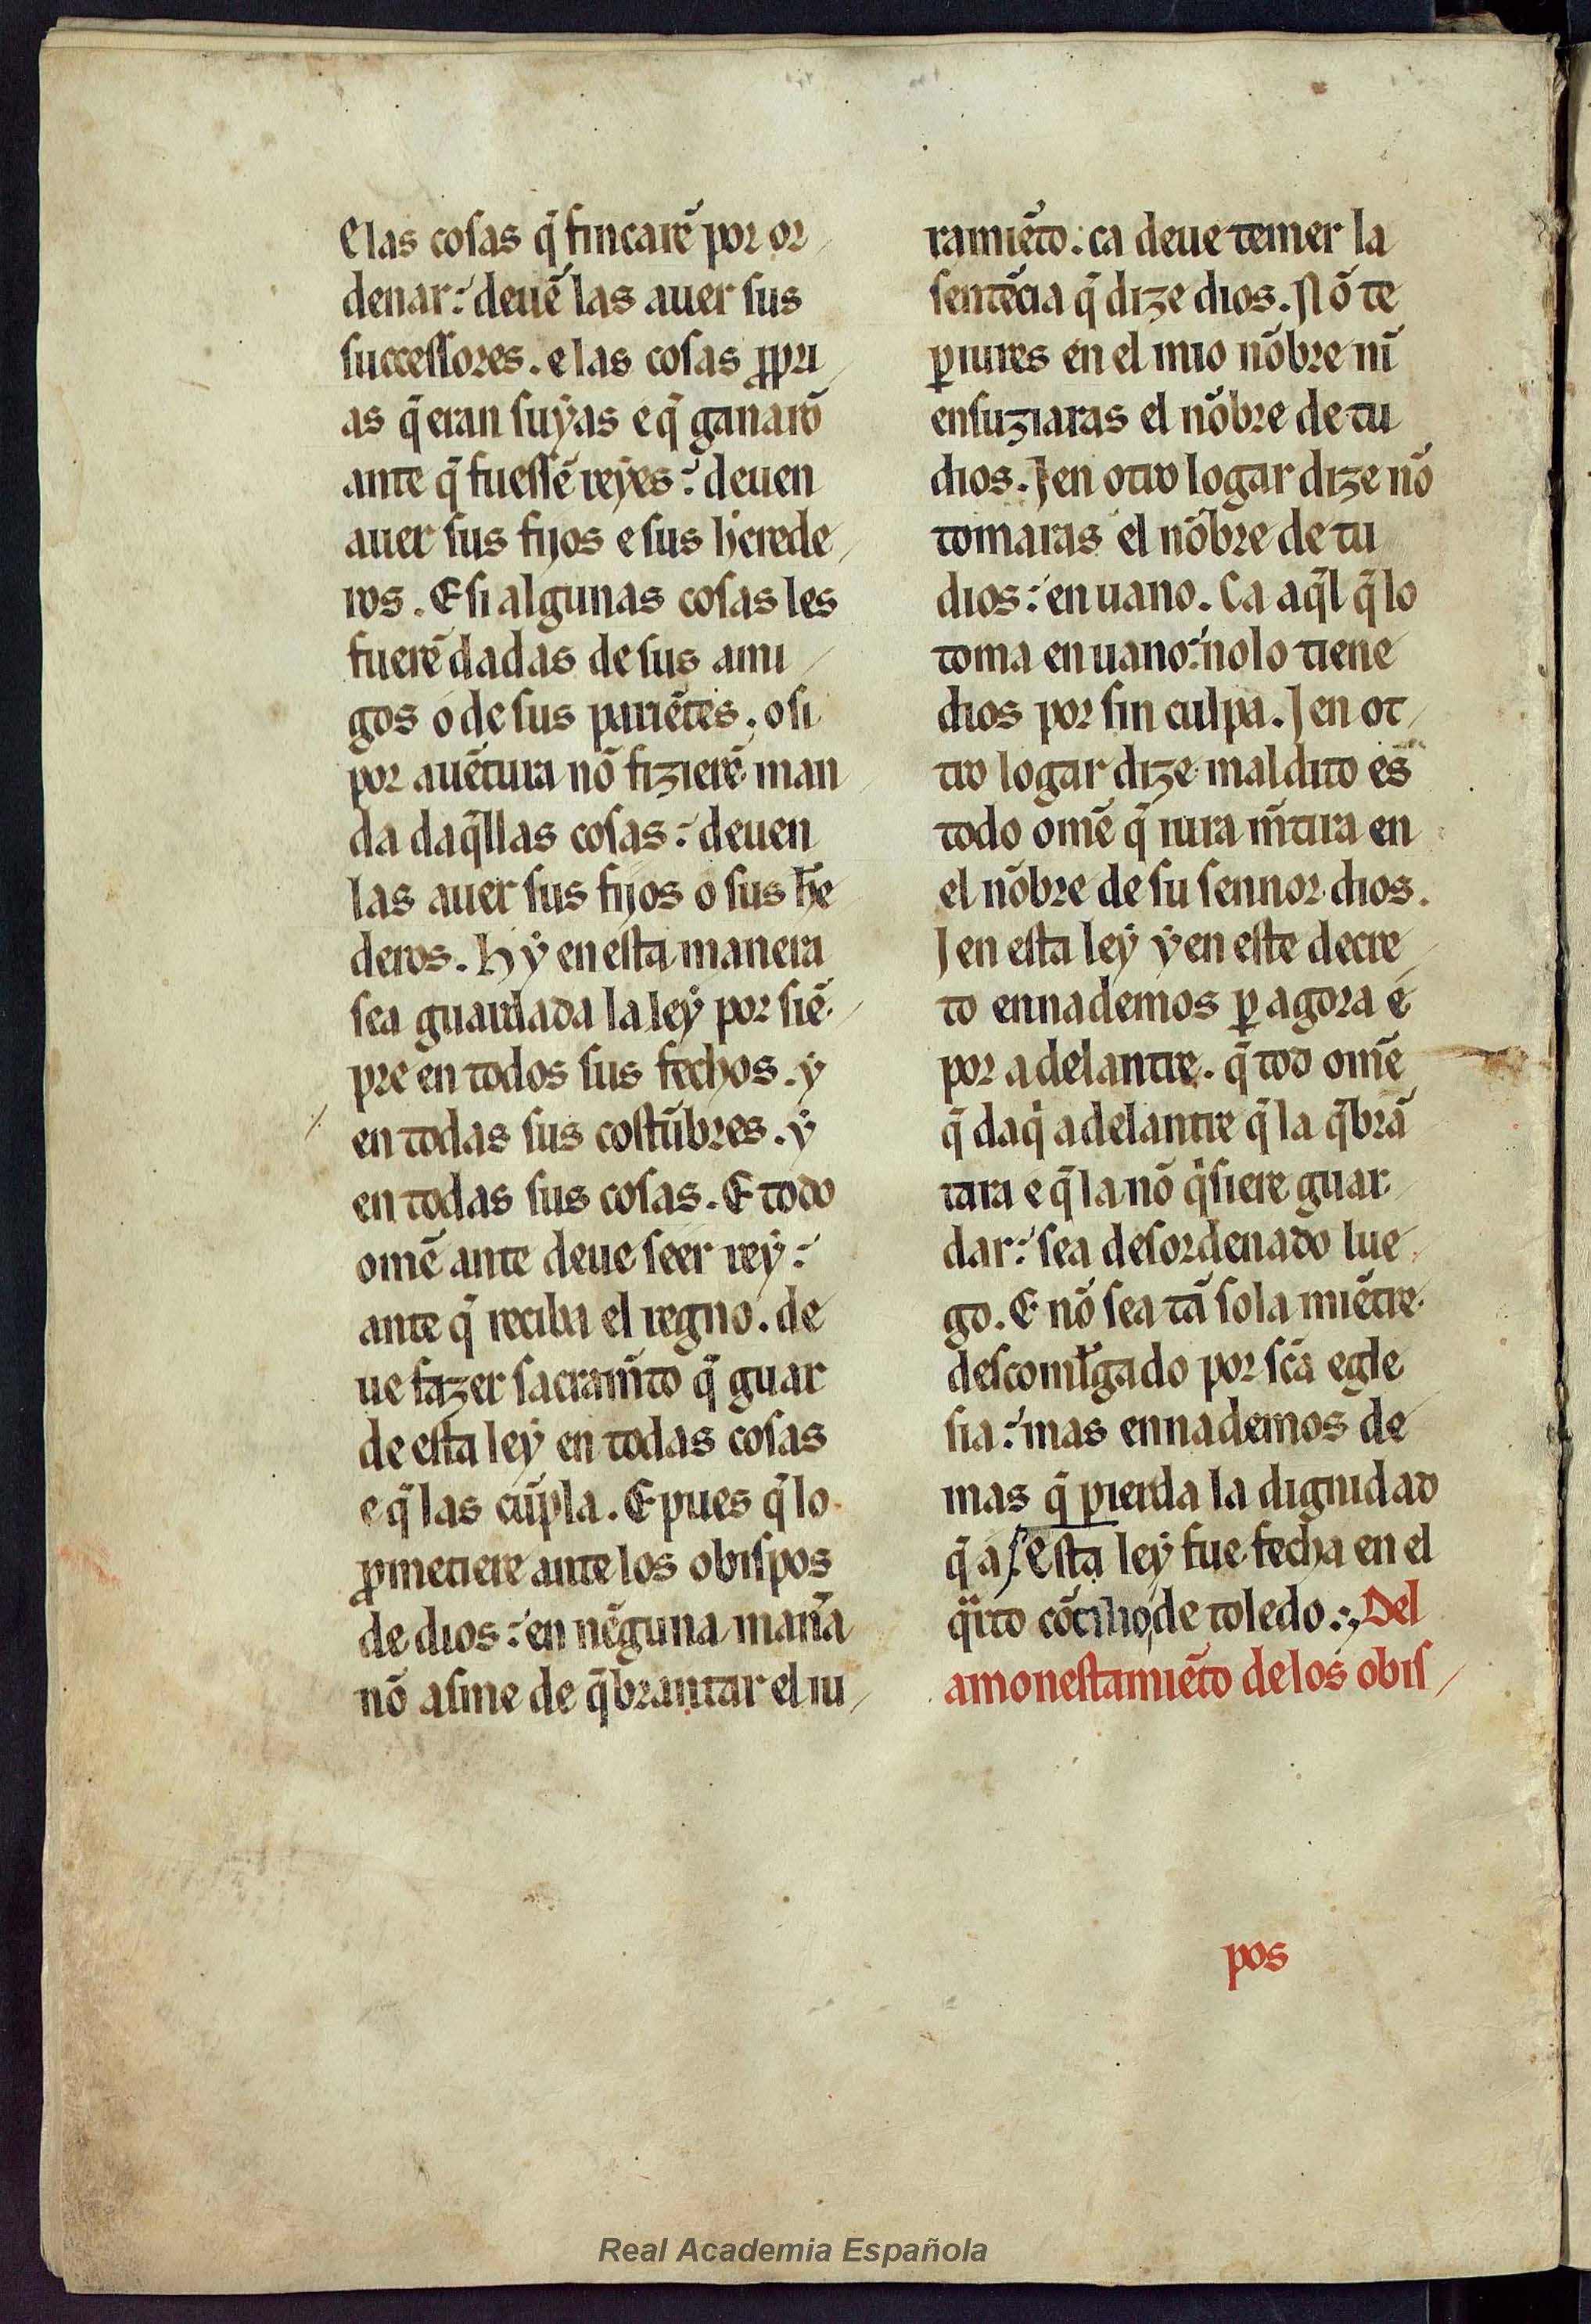 e las cosas q̃ fincarẽ por or
denar: deuẽ las auer sus
successores. e las cosas ꝓpri
as q̃ eran suẏas e q̃ ganarõ
ante q̃ fuessẽ reẏes: deuen
auer sus fijos e sus herede
ros. E si algunas cosas les
fuerẽ dadas de sus ami
gos o de sus pariẽtes. o si
por auẽtura nõ fizierẽ man
da daq̃llas cosas: deuen
las auer sus fijos o sus h̃e
deros. Hẏ en esta manera
sea guardada la leẏ por siẽ
pre en todos sus fechos. ẏ
en todas sus costũbres. ẏ
en todas sus cosas. E todo
omẽ ante deue seer reẏ:
ante q̃ reciba el regno. de
ue fazer sacram̃to q̃ guar
de esta leẏ en todas cosas
e q̃ las cũpla. E pues q̃ lo
ꝓmetiere ante los obispos
de dios: en nẽguna man̄a
nõ asme de q̃brantar el iu
ramiẽto: ca deue temer la
sentẽcia q̃ dize dios. Nõ te
ꝑiures en el mio nõbre nĩ
ensuziaras el nõbre de tu
dios. J en otro logar dize nõ
tomaras el nõbre de tu
dios: en uano. Ca aq̃l q̃ lo
toma en uano: no lo tiene
dios por sin culpa. J en ot
tro logar dize maldito es
todo omẽ q̃ iura m̃tira en
el nõbre de su sennor dios.
J en esta leẏ ẏ en este decre
to ennademos ꝑ agora e
por adelantre. q̃ tod omẽ
q̃ daq̓ adelantre q̃ la q̃brã
tara e q̃ la nõ q̓siere guar
dar: sea desordenado lue
go. E nõ sea tã sola miẽtre
descomũlgado por sc̃a egle
sia: mas ennademos de
mas q̃ pierda la dignidad
q̃ a. Esta leẏ fue fecha en el
q̓ito cõcilio de toledo. Del
amonestamiẽto de los obis
pos
Real Academia Española